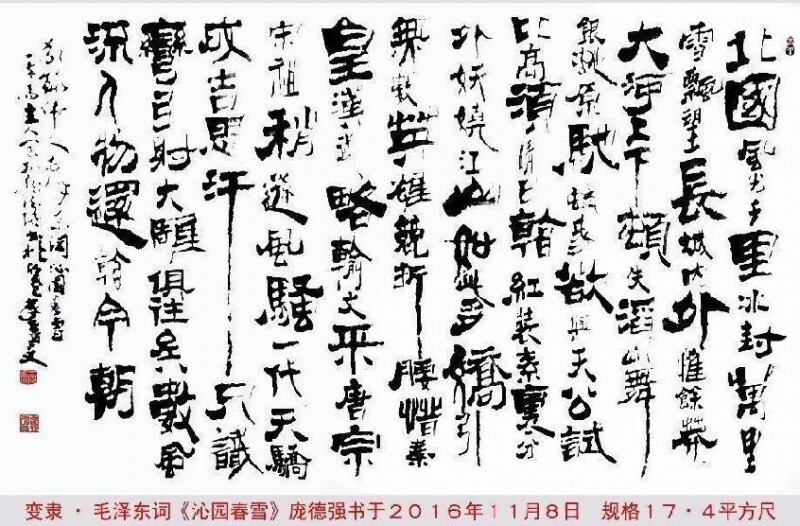 北國風光千里冰封萬里
雪飄望長城內外惟餘莽
大河上下頓失滔山舞
銀蛇原馳蠟象欲與天公試
比高須晴日看紅裝素裹分
外妖嬈江山如此多嬌引
無數英雄競折腰惜秦
皇漢武略輸文采唐宗
宋祖稍遜風騷一代天驕
成吉思汗只識
彎弓射大雕俱往矣數風
流人物還看今朝
变隶·毛泽东词《沁园春雪》庞德强书于2016年11月8日 规格17·4平方尺